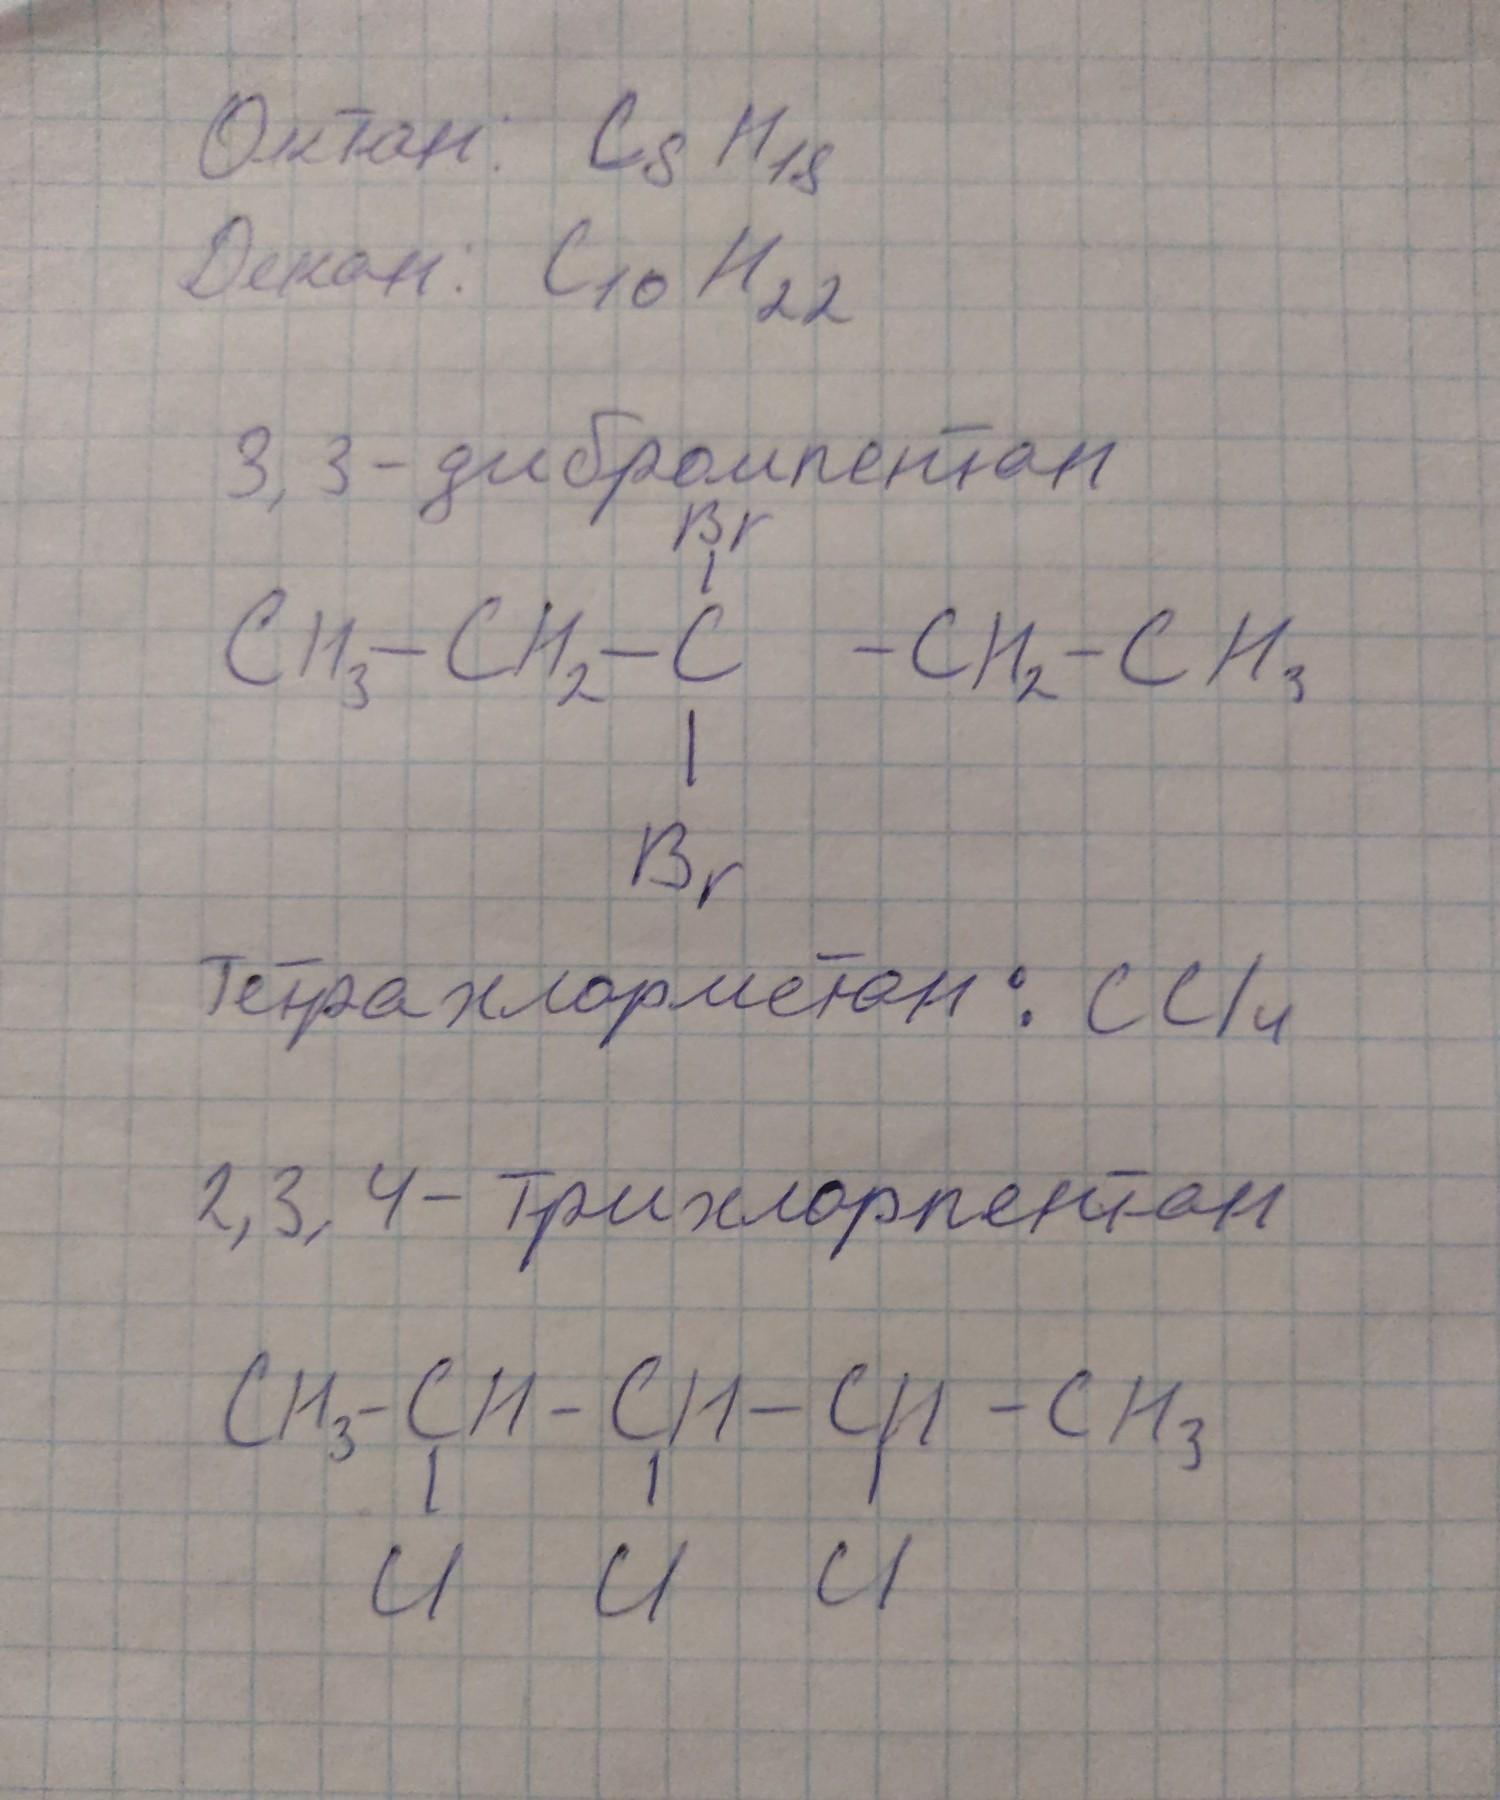 Октан: C₈H₁₈
Декан: C₁₀H₂₂
3,3-дибромпентан
Br
CH₃-CH₂-C -CH₂-CH₃
Br
Тетрахлорметан: CCl₄
2,3,4-Трихлорпентан
CH₃-CH-CH-CH-CH₃
Cl Cl Cl